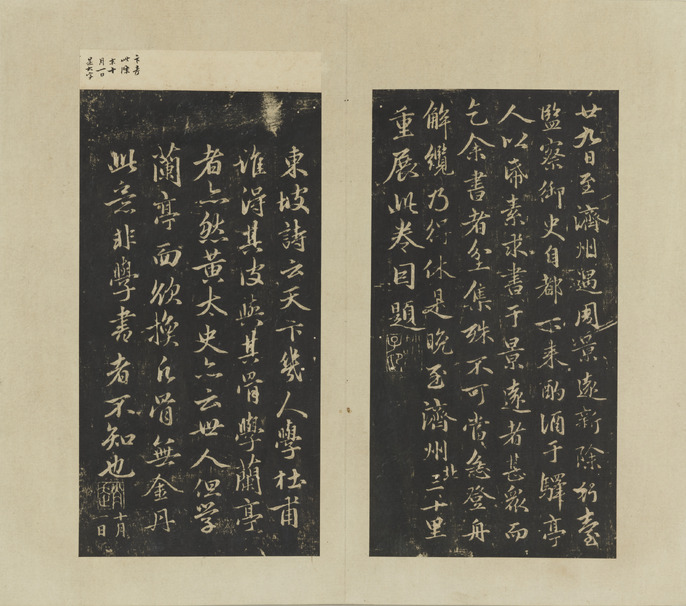 廿九日至濟州遇周景遠新除行臺
監察御史自都下来酌酒于驛亭
人以帋素求書于景遠者甚衆而
乞余書者坌集殊不可當急登舟
解纜乃得休是晚至濟州北三十里
重展此卷因題
月一日
東坡詩云天下幾人學杜甫
誰得其皮與其骨學蘭亭
者亦然黄太史亦云世人但学
蘭亭面欲換凡骨無金丹
此意非學書者不知也
十月
一日